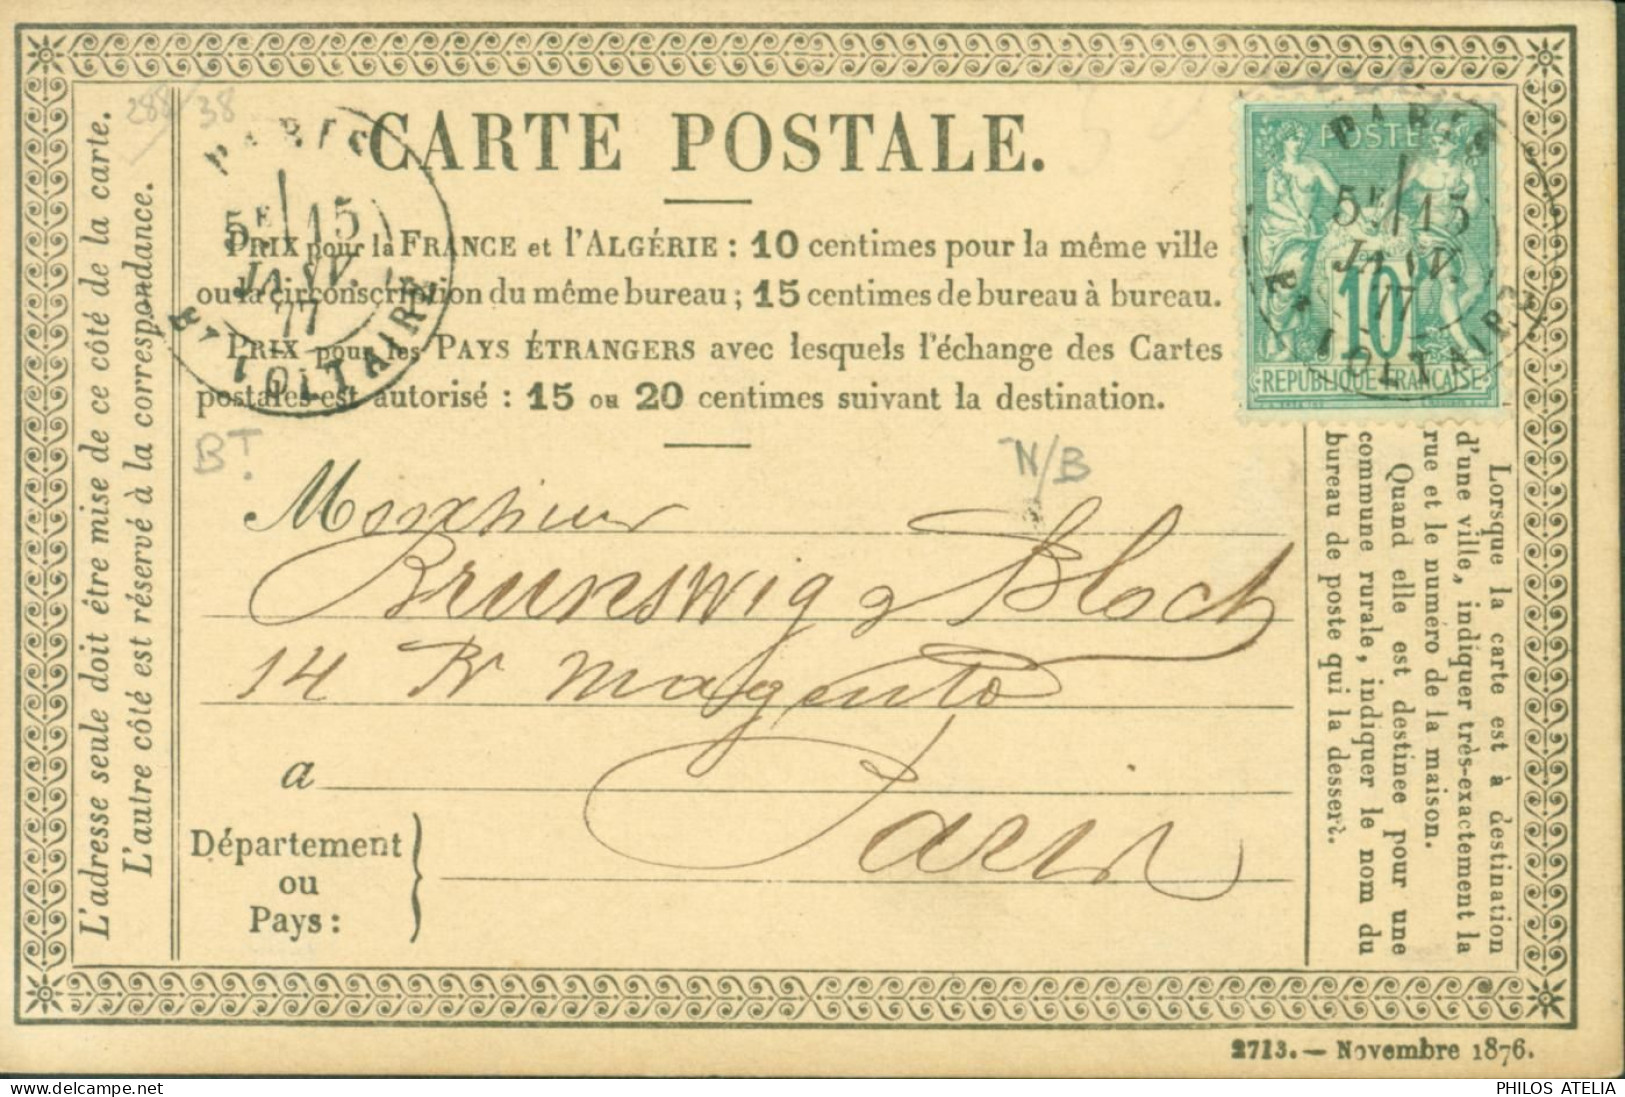 CARTE POSTALE.
PRIX pour la FRANCE et l'ALGÉRIE : 10 centimes pour la même ville
ou la circonscription du même bureau ; 15 centimes de bureau à bureau.
PRIX pour les PAYS ÉTRANGERS avec lesquels l'échange des Cartes
postales est autorisé : 15 ou 20 centimes suivant la destination.
L'adresse seule doit être mise de ce côté de la carte.
L'autre côté est réservé à la correspondance.
288/38
PARIS
5E 15
JANV.
77
Bd VOLTAIRE
POSTE
10
REPUBLIQUE FRANÇAISE
PARIS
5E 15
JANV.
77
Bd VOLTAIRE
BT
N/B
Monsieur
Brunswig & Bloch
14 Bd Magenta
a Paris
Département
ou
Pays :
Lorsque la carte est à destination
d'une ville, indiquer très-exactement la
rue et le numéro de la maison.
Quand elle est destinée pour une
commune rurale, indiquer le nom du
bureau de poste qui la dessert.
2713. — Novembre 1876.
PHILOS ATELIA